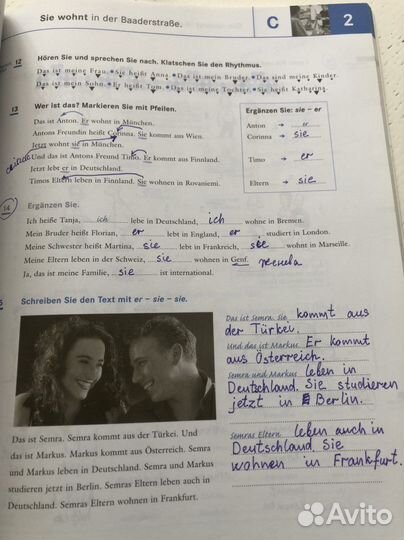 Sie wohnt in der Baaderstraße.
C 2
12 Hören Sie und sprechen Sie nach. Klatschen Sie den Rhythmus.
Das ist meine Frau. Sie heißt Anna. Das ist mein Bruder. Das sind meine Kinder.
Das ist mein Sohn. Er heißt Tom. Das ist meine Tochter. Sie heißt Katharina.
13 Wer ist das? Markieren Sie mit Pfeilen.
Das ist Anton. Er wohnt in München.
Antons Freundin heißt Corinna. Sie kommt aus Wien.
Jetzt wohnt sie in München.
Und das ist Antons Freund Timo. Er kommt aus Finnland.
Jetzt lebt er in Deutschland.
Timos Eltern leben in Finnland. Sie wohnen in Rovaniemi.
Ergänzen Sie: sie – er
Anton → er
Corinna → sie
Timo → er
Eltern → sie
14 Ergänzen Sie.
Ich heiße Tanja, ich lebe in Deutschland, ich wohne in Bremen.
Mein Bruder heißt Florian, er lebt in England, er studiert in London.
Meine Schwester heißt Martina, sie lebt in Frankreich, sie wohnt in Marseille.
Meine Eltern leben in der Schweiz, sie wohnen in Genf.
Ja, das ist meine Familie, sie ist international.
Schreiben Sie den Text mit er – sie – sie.
Das ist Semra. Semra kommt aus der Türkei. Und
das ist Markus. Markus kommt aus Österreich. Semra
und Markus leben in Deutschland. Semra und Markus
studieren jetzt in Berlin. Semras Eltern leben auch in
Deutschland. Semras Eltern wohnen in Frankfurt.
Das ist Semra. Sie kommt aus
der Türkei.
Und das ist Markus. Er kommt
aus Österreich.
Semra und Markus leben in
Deutschland. Sie studieren
jetzt in Berlin.
Semras Eltern leben auch in
Deutschland. Sie
wohnen in Frankfurt.
Avito